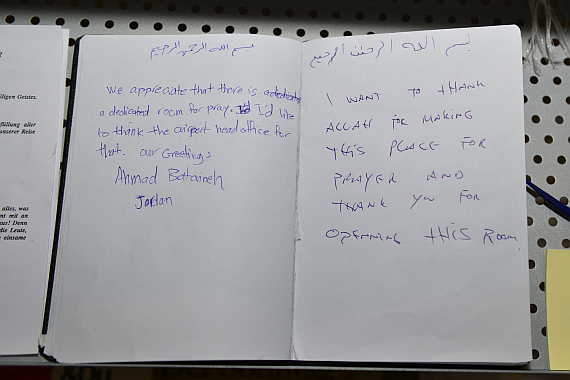 eiligen Geistes.
füllung aller
unserer Reise
alles, was
mt an
aus! Denn
die Leute,
einsame
بسم الله الرحمن الرحيم
we appreciate that there is
a dedicated room for pray. I'd like
to thank the airport head office for
that. our Greetings
Ahmad Battaineh
Jordan
بسم الله الرحمن الرحيم
I WANT TO THANK
ALLAH FOR MAKING
THIS PLACE FOR
PRAYER AND
THANK YOU FOR
OPENNING THIS ROOM.